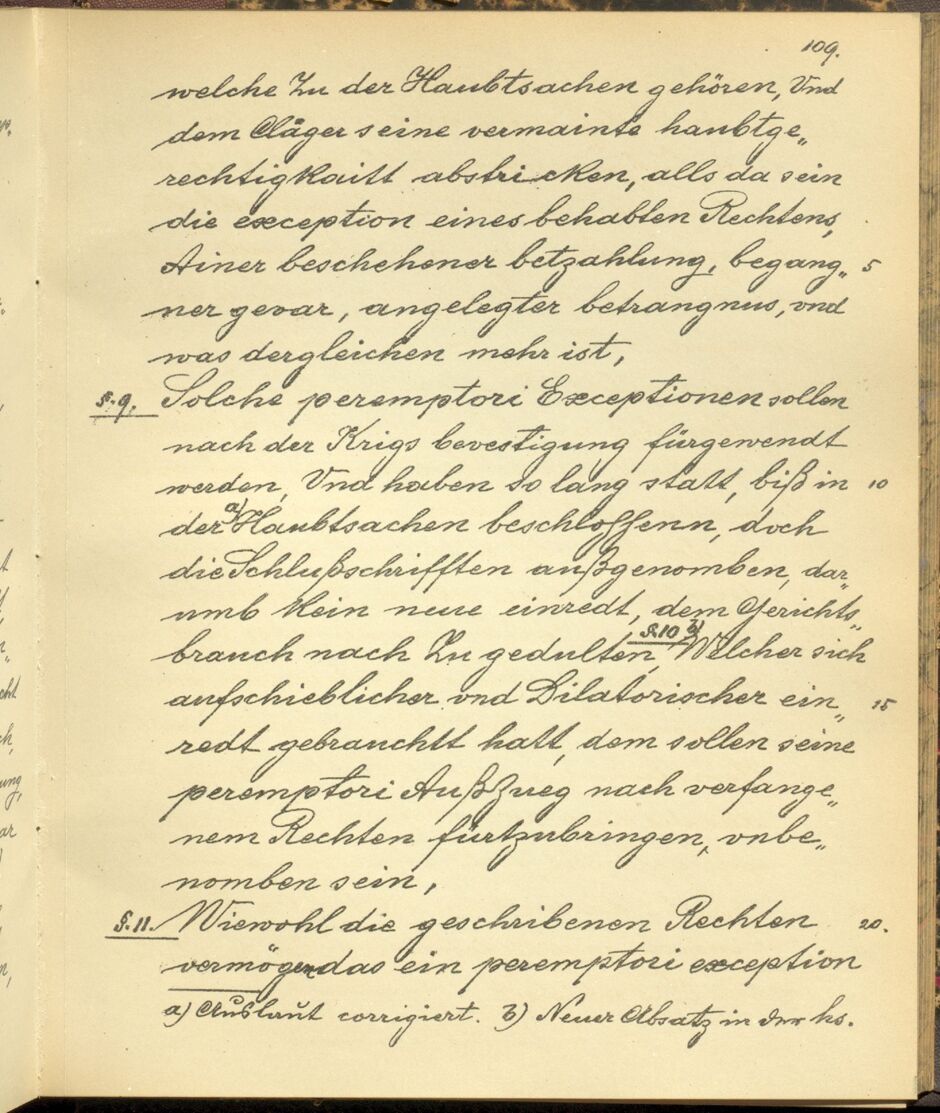 109.
welche Zu der Haubtsachen gehören, Vnd
dem Cläger seine vermainte haubtge„
rechtigkaitt abstricken, alls da sein
die exception eines behabten Rechtens,
Ainer beschehener betzahlung, begang„ 5
ner gevar, angelegter betrangnus, vnd
was dergleichen mehr ist,
§. 9. Solche peremptori Exceptionen sollen
nach der Krigs bevestigung fürgewendt
werden, Vnd haben so lang statt, biß in 10
der a) Haubtsachen beschlossenn, doch
die Schlußschrifften außgenomben, dar„
umb kein neue einredt, dem Gerichts„
brauch nach Zu gedulten, §.10 b) Welcher sich
aufschieblicher vnd Dilatorischer ein„ 15
redt gebrauchtt hatt, dem sollen seine
peremptori Außzueg nach verfange„
nem Rechten fürtzubringen, vnbe„
nomben sein,
§. 11. Wiewohl die geschribenen Rechten 20.
vermögen das ein peremptori exception
a) Auslaut corrigiert. b) Neuer Absatz in der hs.